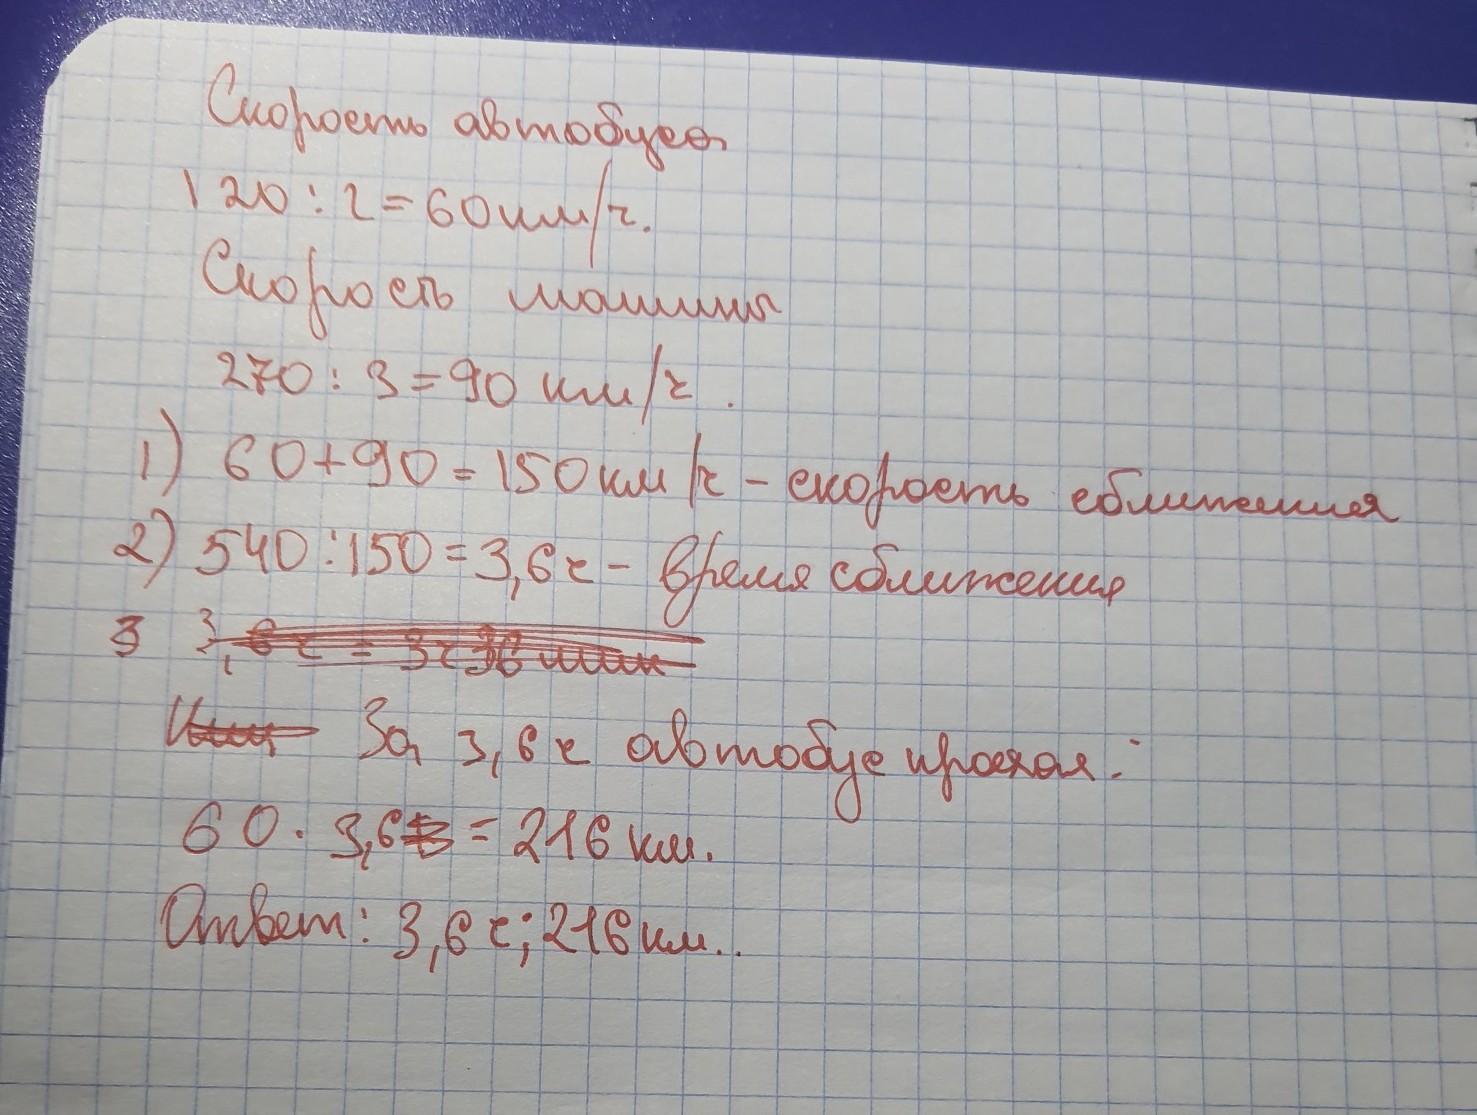 Скорость автобуса
120 : 2 = 60 км/ч.
Скорость машины
270 : 3 = 90 км/ч.
1) 60 + 90 = 150 км/ч – скорость сближения
2) 540 : 150 = 3,6 ч – время сближения
3 3,6 ч = 3ч 36 мин
За 3,6 ч автобус проехал:
60 · 3,6 = 216 км.
Ответ: 3,6 ч; 216 км..